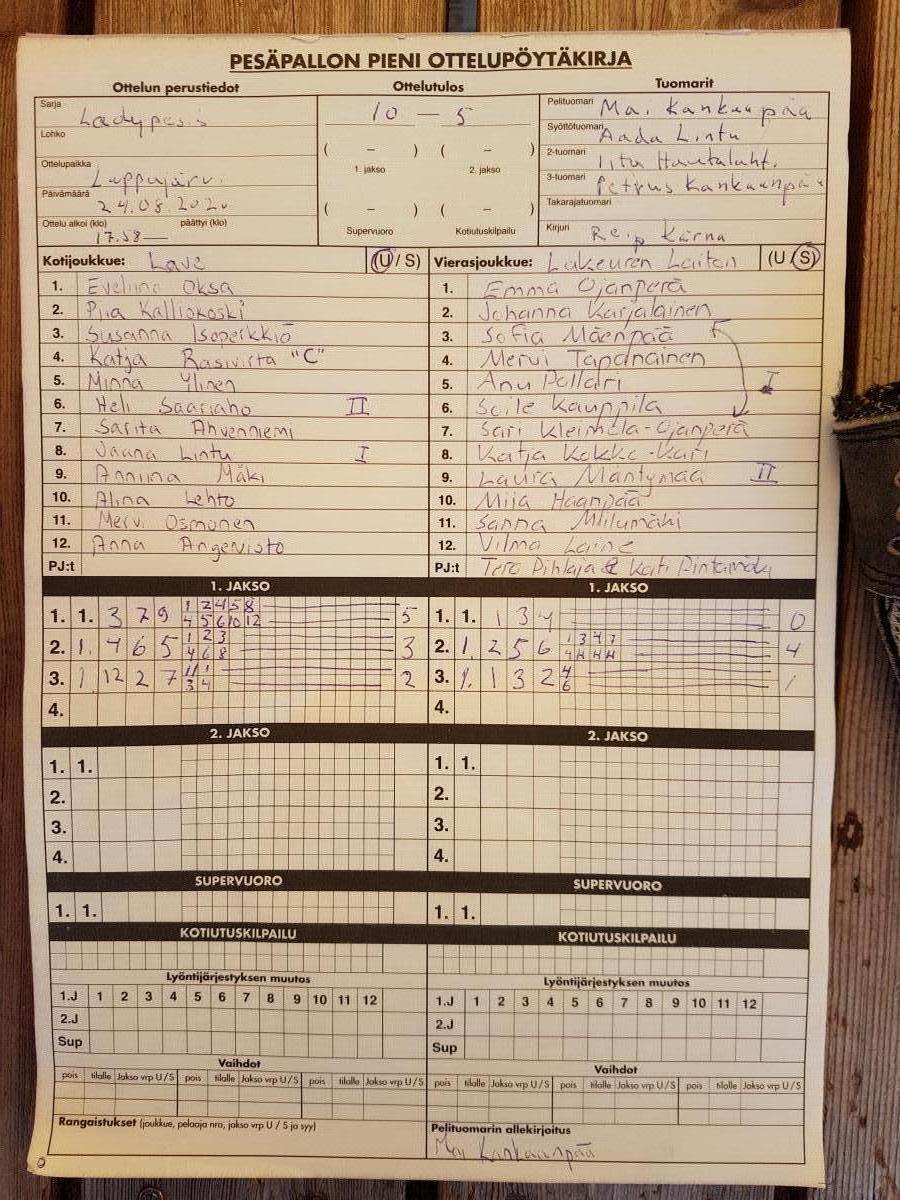 PESÄPALLON PIENI OTTELUPÖYTÄKIRJA
Ottelun perustiedot Ottelutulos Tuomarit
Sarja Ladypesis
Lohko
Ottelupaikka Lappajärvi
Päivämäärä 24.08.2020
Ottelu alkoi (klo) päättyi (klo)
17.58 —
10 – 5
( – ) ( – )
1. jakso 2. jakso
( – ) ( – )
Supervuoro Kotiutuskilpailu
Pelituomari Mai Kankaanpää
Syöttötuomari Aada Lintu
2-tuomari Iitu Hautalaht.
3-tuomari Petrus Kankaanpää
Takarajatuomari
Kirjuri Reip Kärnä
Kotijoukkue: Lave (U / S)
1. Eveliina Oksa
2. Piia Kalliokoski
3. Susanna Isoperkkiö
4. Katja Rasivirta "C"
5. Minna Ylinen
6. Heli Saariaho II
7. Sarita Ahvenniemi
8. Jaana Lintu I
9. Anniina Mäki
10. Alina Lehto
11. Mervi Osmonen
12. Anna Angervisto
PJ:t
Vierasjoukkue: Lakeuren Laiton (U / S)
1. Emma Ojanperä
2. Johanna Karjalainen
3. Sofia Mäenpää
4. Mervi Tapanainen
5. Anu Pollari I
6. Soile Kauppila
7. Sari Kleimola-Ojanperä
8. Katja Kokko-Kari
9. Laura Mäntymaa II
10. Miia Haanpää
11. Sanna Miilumäki
12. Vilma Laine
PJ:t Tero Pihlaja & Kati Pintamäki
1. JAKSO
1. 1. 3 7 9 1 2 4 5 8 5
4 5 6 10 12
2. 1. 4 6 5 1 2 3 3
4 6 8
3. 1. 12 2 7 11 1 2
3 4
4.
1. JAKSO
1. 1. 1 3 4 0
2. 1. 2 5 6 1 3 4 7 4
4 4 4 4
3. 1. 1 3 2 4 1
6
4.
2. JAKSO
1. 1.
2.
3.
4.
2. JAKSO
1. 1.
2.
3.
4.
SUPERVUORO
1. 1.
SUPERVUORO
1. 1.
KOTIUTUSKILPAILU
KOTIUTUSKILPAILU
Lyöntijärjestyksen muutos
1.J 1 2 3 4 5 6 7 8 9 10 11 12
2.J
Sup
Lyöntijärjestyksen muutos
1.J 1 2 3 4 5 6 7 8 9 10 11 12
2.J
Sup
Vaihdot
pois tilalle Jakso vrp U / S pois tilalle Jakso vrp U / S pois tilalle Jakso vrp U / S
Vaihdot
pois tilalle Jakso vrp U / S pois tilalle Jakso vrp U / S pois tilalle Jakso vrp U / S
Rangaistukset (joukkue, pelaaja nro, jakso vrp U / S ja syy)
Pelituomarin allekirjoitus
Mai Kankaanpää